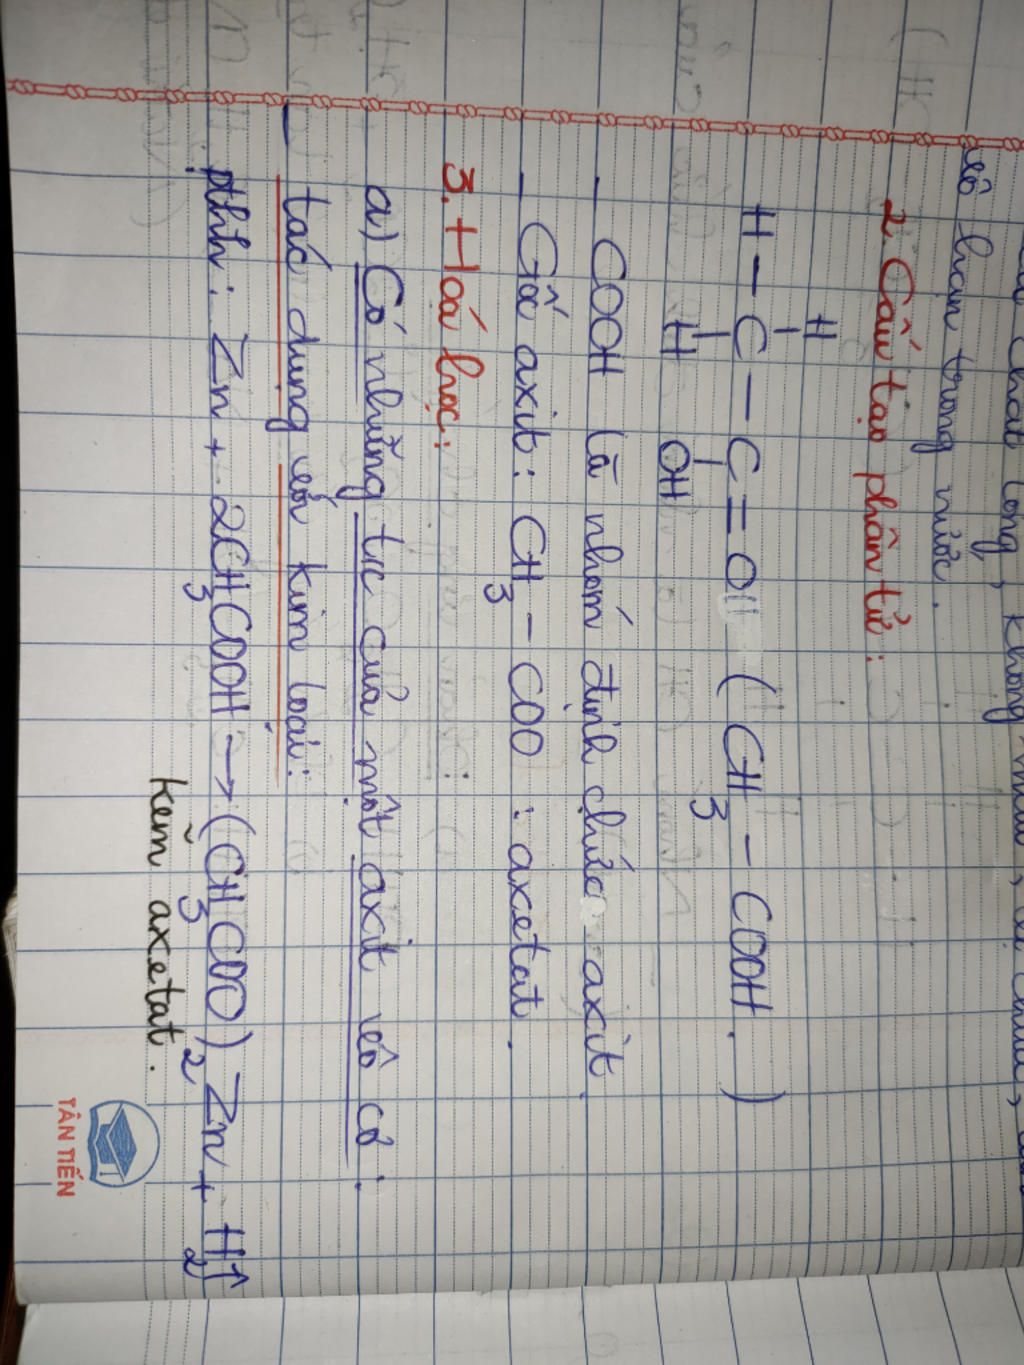 chất lỏng, không
vô hạn trong nước.
2. Cấu tạo phân tử:
H
H – C – C = O (CH3 – COOH.)
H OH
– COOH là nhóm định chức axit.
– Gốc axit: CH3 – COO : axetat.
3. Hoá học:
a) Có những t/c của một axit vô cơ:
– tác dụng với kim loại:
pthh: Zn + 2CH3COOH → (CH3COO)2 Zn + H2↑
kẽm axetat.
TÂN TIẾN